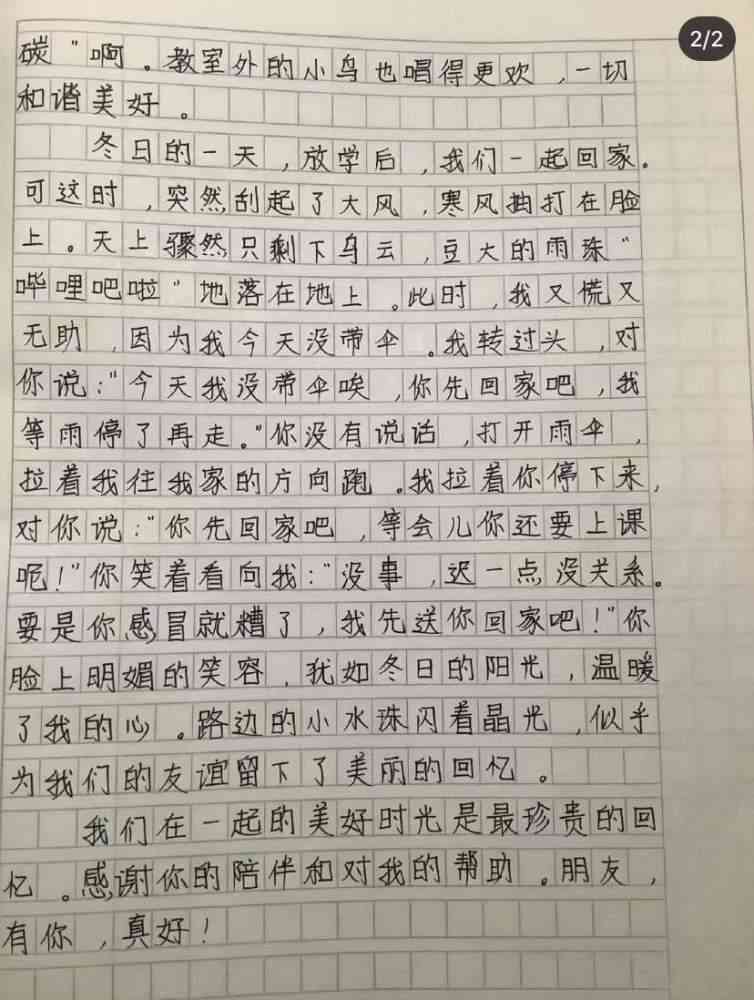 2/2
碳"啊。教室外的小鸟也唱得更欢,一切
和谐美好。
冬日的一天,放学后,我们一起回家。
可这时,突然刮起了大风,寒风抽打在脸
上。天上骤然只剩下乌云,豆大的雨珠"
哗哩吧啦"地落在地上。此时,我又慌又
无助,因为我今天没带伞。我转过头,对
你说:"今天我没带伞唉,你先回家吧,我
等雨停了再走。"你没有说话,打开雨伞,
拉着我往我家的方向跑。我拉着你停下来,
对你说:"你先回家吧,等会儿你还要上课
呢!"你笑着看向我:"没事,迟一点没关系。
要是你感冒就糟了,我先送你回家吧!"你
脸上明媚的笑容,犹如冬日的阳光,温暖
了我的心。路边的小水珠闪着晶光,似乎
为我们的友谊留下了美丽的回忆。
我们在一起的美好时光是最珍贵的回
忆。感谢你的陪伴和对我的帮助。朋友,
有你,真好!